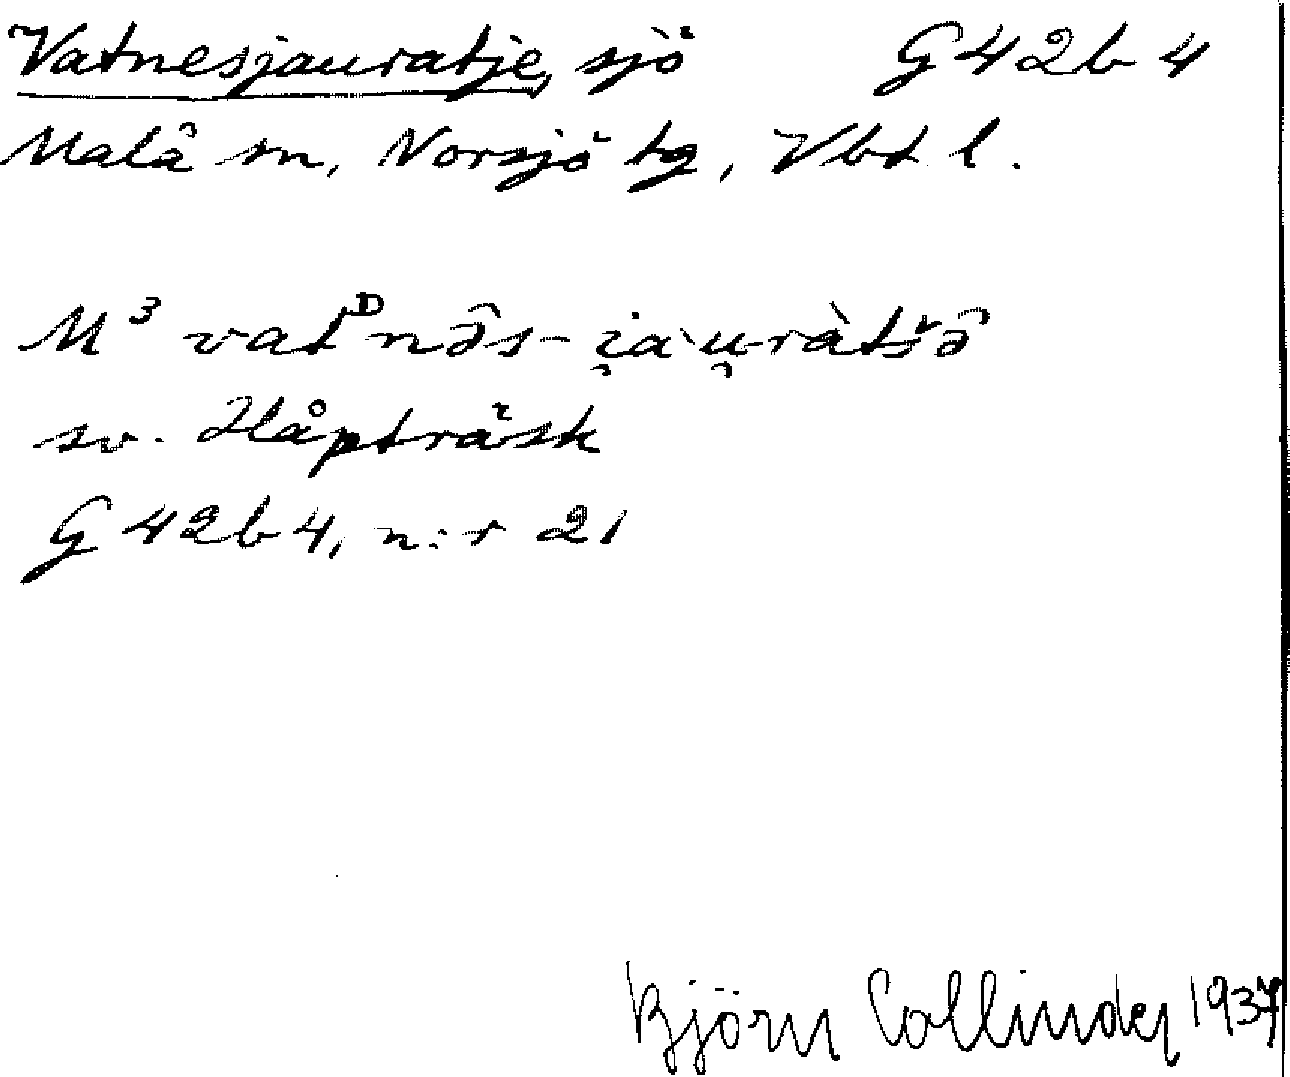 Vatnesjauratje, sjö G42b4
Malå sn, Norsjö tg, Vbt l.
M³ vatᴰnə̂s-i̯a`u̯ràtšə̂
sv. Håpträsk
G42b4, n:r 21
Björn Collinder 1937